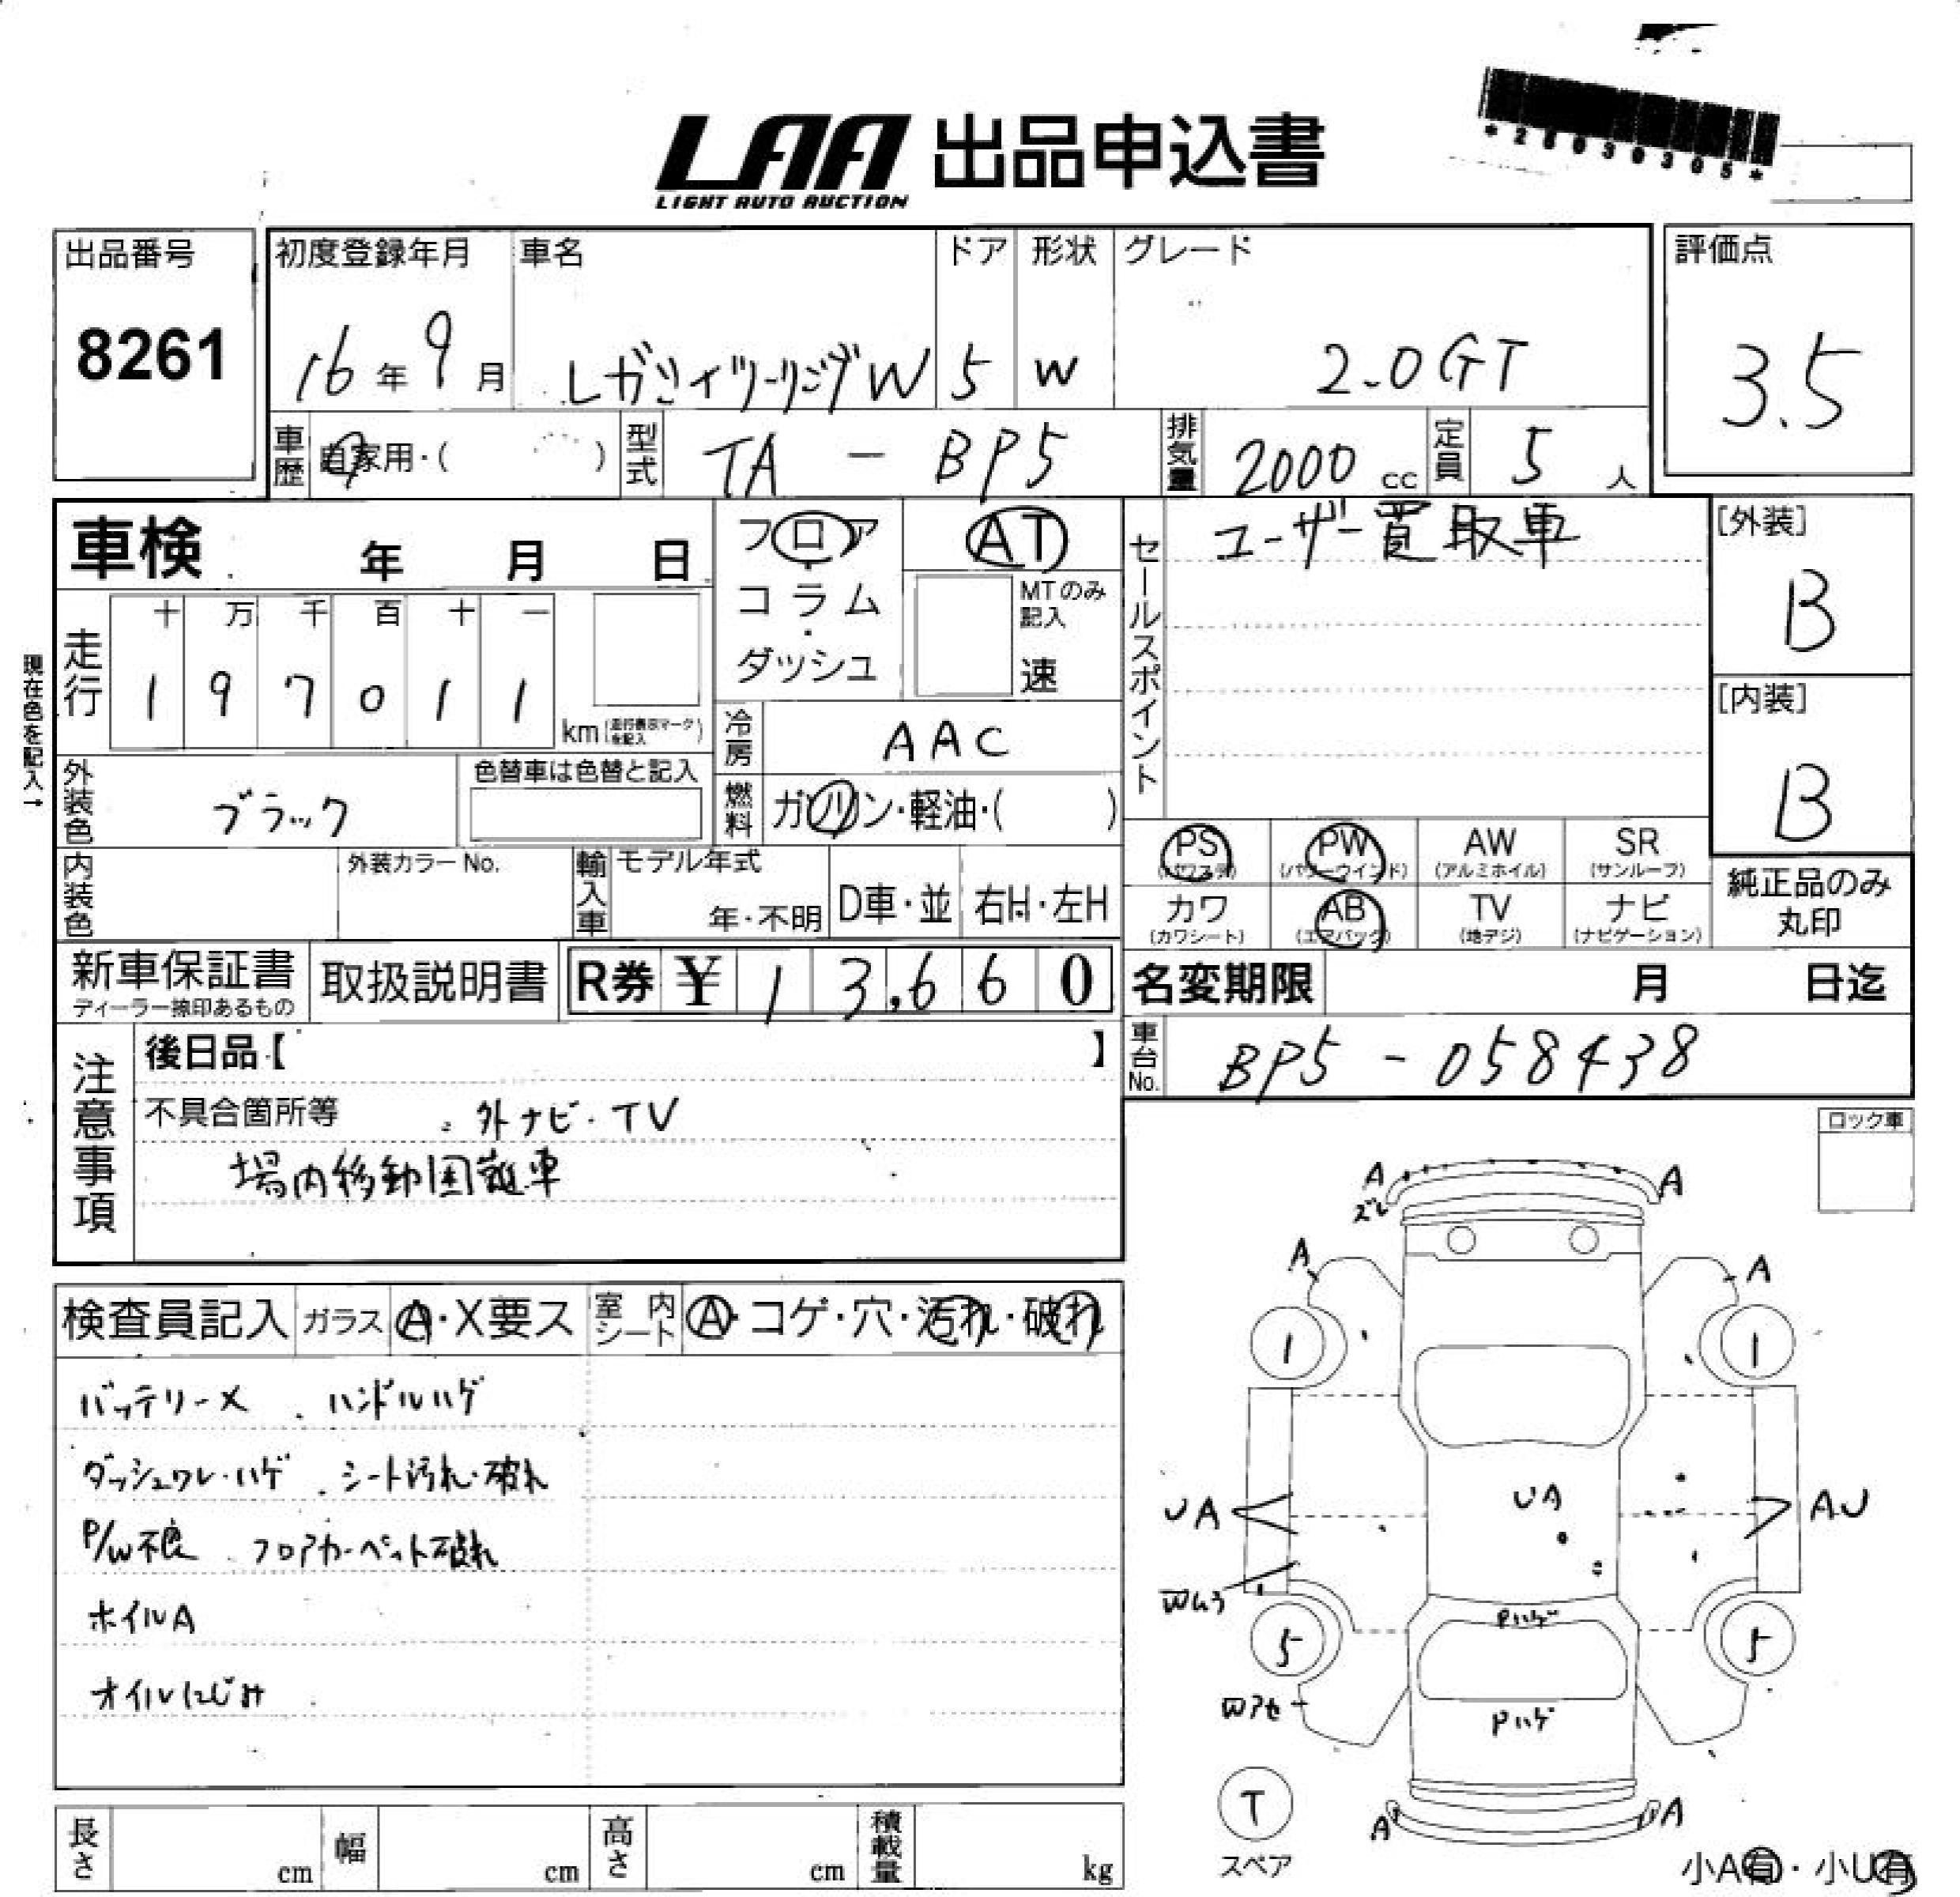 LAA 出品申込書
LIGHT AUTO AUCTION
*26030305*
出品番号
8261
初度登録年月
16年9月
車名
レガシィツーリングW
ドア
5
形状
W
グレード
2.0GT
評価点
3.5
車歴 自家用・( )
型式 TA - BP5
排気量 2000 cc
定員 5 人
車検 年 月 日
フロア・コラム・ダッシュ
AT
MTのみ記入
速
セールスポイント
ユーザー買取車
[外装]
B
[内装]
B
現在色を記入→
走行
十 万 千 百 十 一
1 9 7 0 1 1
km(走行表示マークを記入)
冷房 AAC
外装色 ブラック
色替車は色替と記入
燃料 ガソリン・軽油・( )
PS (パワステ)
PW (パワーウインド)
AW (アルミホイル)
SR (サンルーフ)
カワ (カワシート)
AB (エアバック)
TV (地デジ)
ナビ (ナビゲーション)
純正品のみ丸印
内装色
外装カラーNo.
輸入車
モデル年式
年・不明
D車・並
右H・左H
新車保証書
ディーラー捺印あるもの
取扱説明書
R券 ¥ 13,660
名変期限 月 日迄
車台No. BP5 - 058438
注意事項
後日品【 】
不具合箇所等 . 外ナビ・TV
場内移動困難車
ロック車
検査員記入
ガラス A・X要ス
室内シート A・コゲ・穴・汚れ・破れ
バッテリーX . ハンドルハゲ
ダッシュワレ・ハゲ . シート汚れ・破れ
P/W不良 . フロアカーペット破れ
ホイルA
オイルにじみ
A
A
ズレ
A
A
1
1
UA
UA
AU
Wムラ
Pハゲ
5
5
Wアセ
Pハゲ
T
スペア
A
A
小A有・小U有
長さ cm
幅 cm
高さ cm
積載量 kg